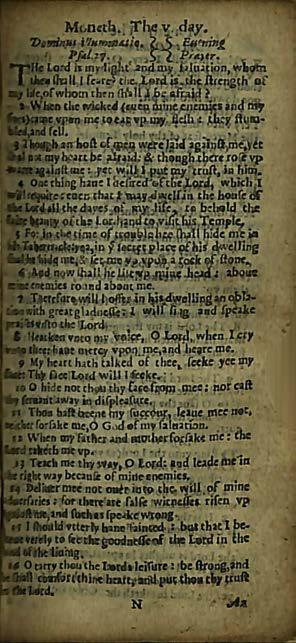 Moneth. The v. day.
Dominus illuminatio. Euening
Psal. 27. Prayer.
THe Lord is my light and my saluation, whom
then shall I feare? the Lord is the strength of
my life, of whom then shall I be afraid?
2 When the wicked (euen mine enemies and my
foes) came vpon me to eat vp my flesh: they stum-
bled, and fell.
3 Though an host of men were laid against me, yet
shall not my heart be afraid: & though there rose vp
warre against me: yet will I put my trust in him.
4 One thing haue I desired of the Lord, which I
will require: euen that I may dwell in the house of
the Lord all the dayes of my life, to behold the
faire beauty of the Lord, and to visit his Temple.
5 For in the time of trouble hee shall hide me in
his Tabernacle: yea, in ye secret place of his dwelling
shall he hide me, & set me vp vpon a rock of stone.
6 And now shall he lift vp mine head: aboue
mine enemies round about me.
7 Therefore will I offer in his dwelling an obla-
tion with great gladnesse: I will sing and speake
praises vnto the Lord.
8 Hearken vnto my voice, O Lord, when I cry
vnto thee: haue mercy vpon me, and heare me.
9 My heart hath talked of thee, seeke yee my
face: Thy face Lord will I seeke.
10 O hide not thou thy face from mee: nor cast
thy seruant away in displeasure.
11 Thou hast beene my succour, leaue mee not,
neither forsake me, O God of my saluation.
12 When my father and mother forsake me: the
Lord taketh me vp.
13 Teach me thy way, O Lord: and leade me in
the right way because of mine enemies.
14 Deliuer mee not ouer into the will of mine
aduersaries: for there are false witnesses risen vp
against me, and such as speake wrong.
15 I should vtterly haue fainted: but that I be-
leeue verely to see the goodnesse of the Lord in the
land of the liuing.
16 O tarry thou the Lords leisure: be strong, and
he shall comfort thine heart, and put thou thy trust
in the Lord.
N Ad